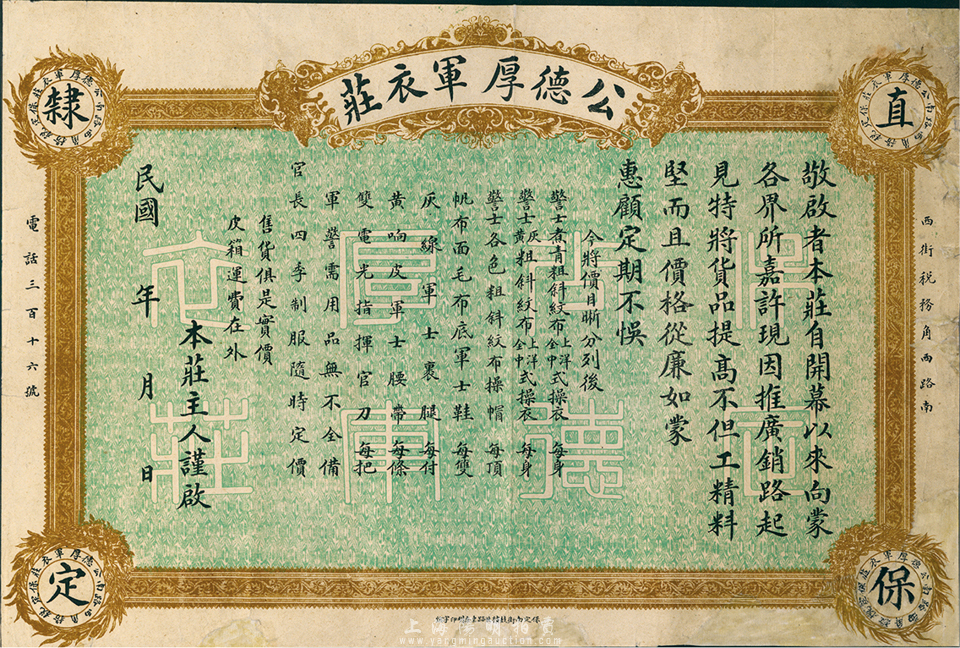 公德厚軍衣莊
直
隸
保
定
西街税務角西路南
敬啟者本莊自開幕以來向蒙
各界所嘉許現因推廣銷路起
見特將貨品提高不但工精料
堅而且價格從廉如蒙
惠顧定期不悞
今將價目晰分列後
警士煮青粗斜紋布上洋全中式操衣 每身
警士灰黃粗斜紋布上洋全中式操衣 每身
警士各色粗斜紋布操帽 每頂
帆布面毛布底軍士鞋 每雙
灰線軍士裹腿 每付
黃响皮軍士腰帶 每條
雙電光指揮官刀 每把
軍警需用品無不全備
官長四季制服隨時定價
售貨俱是實價
皮箱運費在外
本莊主人謹啟
民國 年 月 日
電話三百十六號
公德厚軍衣莊
上海陽明拍賣
www.yangmingauction.com